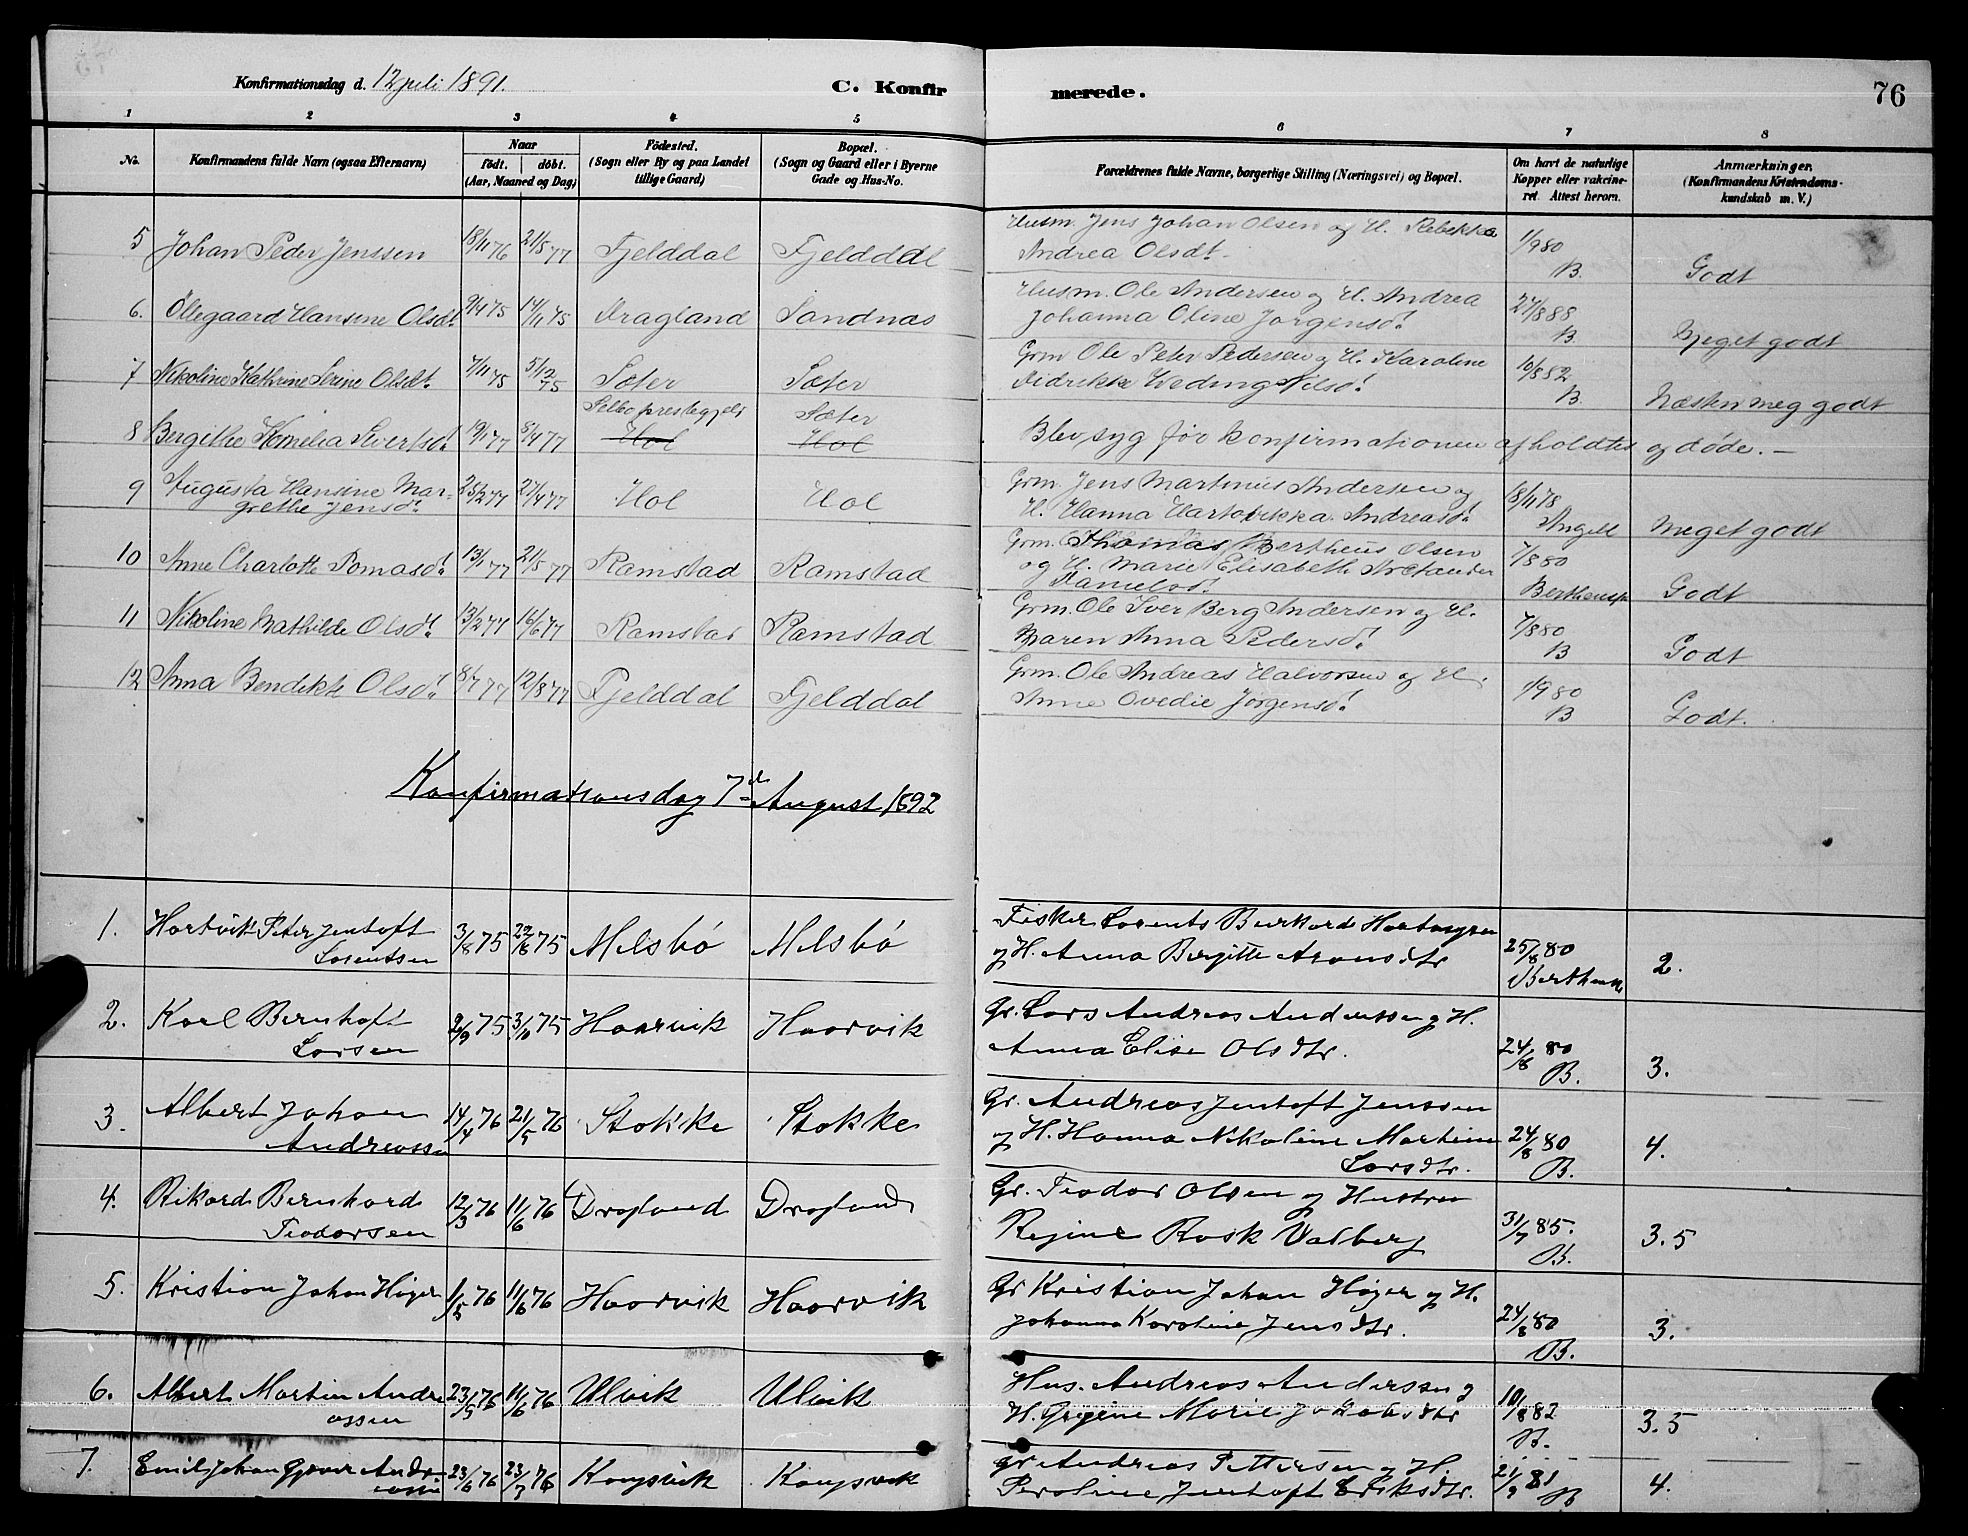 Konfirmationsdag d. 12 juli 1891.
C. Konfirmerede.
76
1 2 3 4 5 6 7 8
No.
Konfirmandens fulde Navn (ogsaa Efternavn)
Naar
födt. döbt.
(Aar, Maaned og Dag)
Födested.
(Sogn eller By og paa Landet
tillige Gaard)
Bopæl.
(Sogn og Gaard eller i Byerne
Gade og Hus-No.
Forældrenes fulde Navne, borgerlige Stilling (Næringsvei) og Bopæl.
Om havt de naturlige
Kopper eller vakcine-
ret. Attest herom.
Anmærkninger.
(Konfirmandens Kristendoms-
kundskab m. V.)
5 Johan Peder Jenssen 18/11 76 21/5 77 Fjelddal Fjelddal
Husm. Jens Johan Olsen og H. Rebekka
Andrea Olsdt.
1/9 80
B. Godt
6. Ollegaard Hansine Olsdt. 9/4 75 14/11 75 Dragland Sandnas
Husm. Ole Andersen og H. Andrea
Johanna Oline Jørgensd.
27/8 88
B. Meget godt
7 Nikoline Kathrine Serine Olsdt. 7/11 75 5/12 75 Sæter Sæter
Grm Ole Peter Pedersen og H. Karoline
Didrikke Weding Nilsd.
10/8 82
B. Næsten meg godt
8 Bergithe Kornelia Sivertsd. 19/1 77 8/4 77 Selbo prestegjeld Sæter
Hol Hol
Blev syg før konfirmationen afholdtes og døde. —
9 Augusta Hansine Mar-
grethe Jensd. 25/2 77 27/4 77 Hol Hol
Grm. Jens Martinus Andersen og
H. Hanna Hartvikka Andreasd.
18/11 78
Angell Meget godt
10 Anne Charlotte Tomasd. 13/1 77 21/5 77 Ramstad Ramstad
Grm. Thomas Bertheus Olsen
og H. Marie Elisabeth
7/8 80
Godt
11 Nikoline Mathilde Olsd. 13/2 77 16/6 77 Ramstad Ramstad
Grm. Ole Iver Berg Andersen og H.
Maren Anna Pedersd.
7/8 80
B Godt
12 Anna Bendikte Olsd. 8/7 77 12/8 77 Fjelddal Fjelddal
Grm. Ole Andreas Halvorsen og H.
Anne Ovedie Jørgensd.
1/9 80
B Godt.
Konfirmationsdag 7de August 1892
1. Hartvik Peter Jentoft
Lorentsen 3/8 75 22/8 75 Melsbö Melsbö
Fisker Lorents Burkard
og H. Anna Bergitte Aronsdtr
25/8 80
2.
2. Karl Bernhoft
Larsen 2/9 75 3/10 75 Haarvik Haarvik
Gr. Lars Andreas Anderssen og H.
Anna Elise Olsdtr.
24/8 80
B. 3.
3. Albert Johan
Andreassen 14/4 76 21/5 76 Stokke Stokke
Gr. Andreas Jentoft Jenssen
og H. Hanna Nikoline Martine
Larsdtr.
24/8 80
B. 4.
4. Rikard Bernhard
Teodorsen 12/3 76 11/6 76 Dragland Dragland
Gr. Teodor Olsen og Hustru
Regine Rask Valberg
31/7 85.
B. 3.5
5. Kristian Johan Höger 1/5 76 11/6 76 Haarvik Haarvik
Gr Kristian Johan Höger og H.
Johanna Karoline Jensdtr.
24/8 80
B. 3.
6. Albert Martin Andre
assen 23/5 76 11/6 76 Ulvik Ulvik
Hus. Andreas Anderssen og
H. Marie Jakobsdtr
10/8 82
B. 3.5
7. Emil Johan Gjæver Andre
assen 23/6 76 23/7 76 Kongsvik Kongsvik
Gr Andreas Pettersen og H.
Peroline Jentoft Eriksdtr.
21/9 81
B 4.